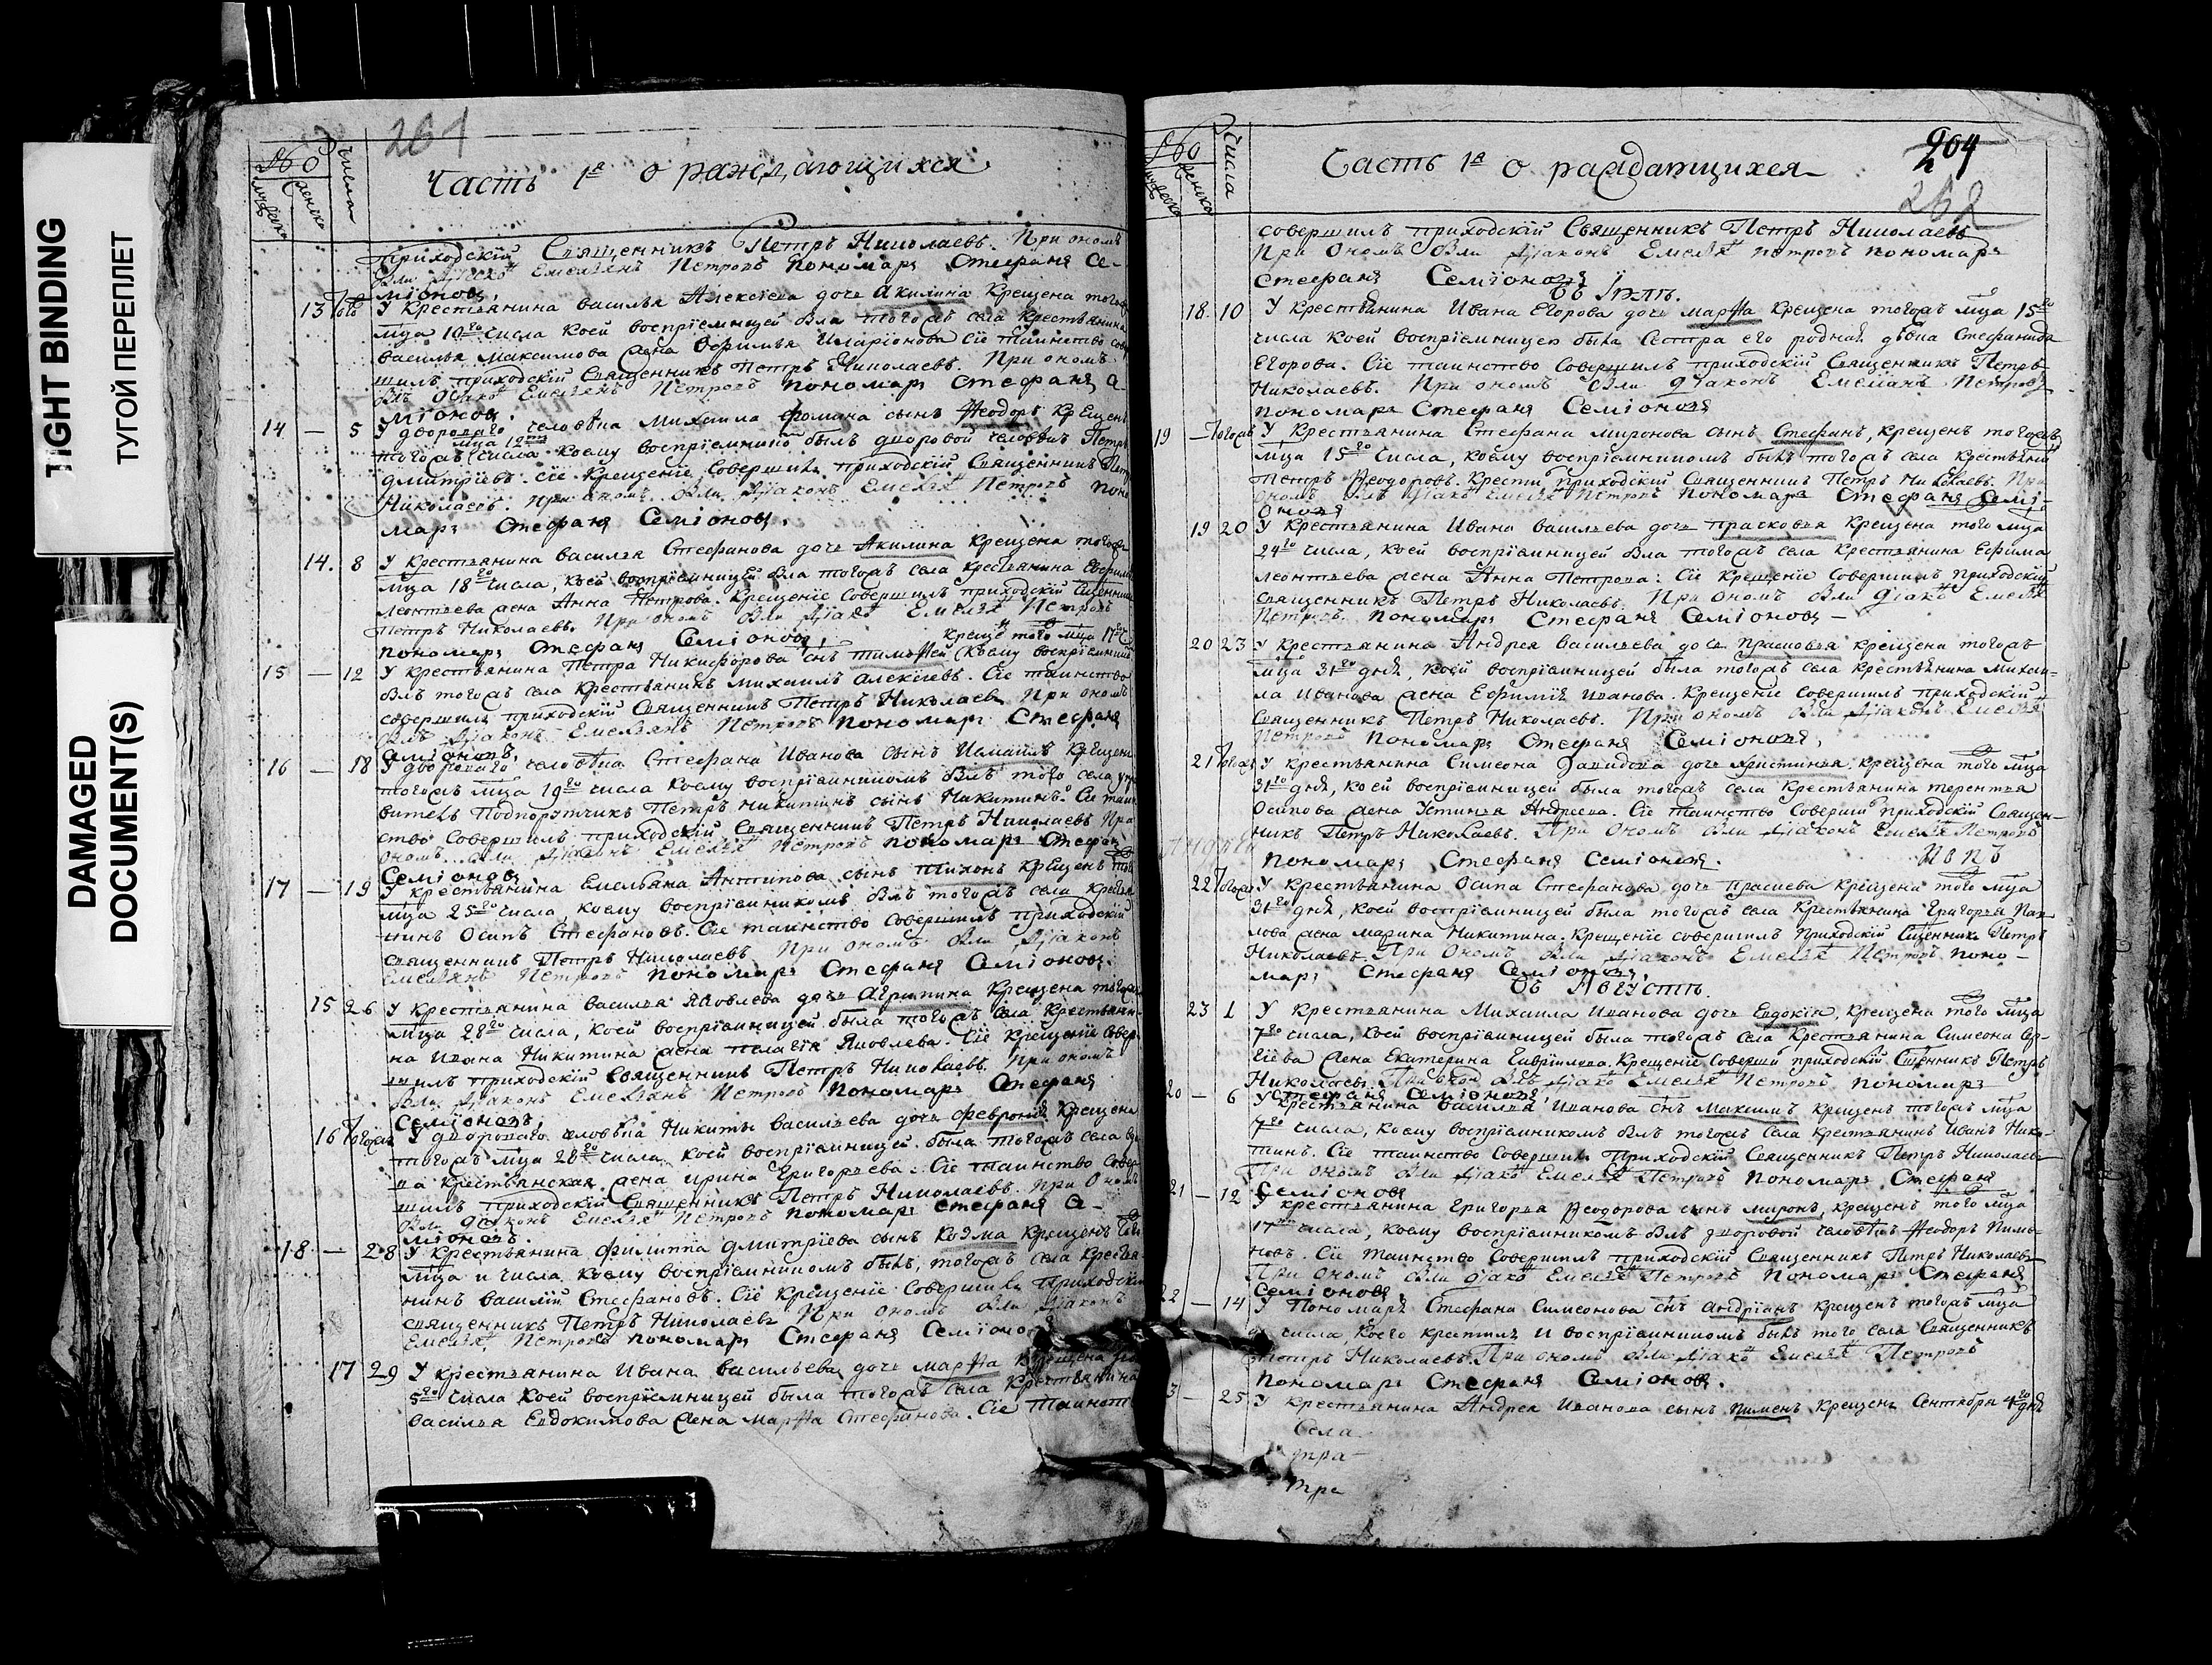 TIGHT BINDING
ТУГОЙ ПЕРЕПЛЕТ
DAMAGED
DOCUMENT(S)
261
Часть 1я о раждающихся
приходскїй Священникъ Петръ Николаевъ. При ономъ
Емельянъ Петровъ пономарь Стефанъ Се-
мїоновъ.
13 У крестьянина василья Алексїева дочь Акилина крещена тогожъ
мца 10го числа коей воспрїемницей была тогожъ села крестьянина
василья Максимова жена Ефимья Иларїонова сїе таинство
шилъ приходскїй Священникъ Петръ Николаевъ. При ономъ
Емельянъ Петровъ пономарь Стефанъ Се-
мїоновъ.
14 — 5 У двороваго человѣка Михаила фомина сынъ Ѳеодоръ крещенъ
мца 12го
тогожъ числа коему воспрїемникомъ былъ дворовой человѣкъ Петръ
дмитрїевъ. сїе крещенїе совершилъ приходскїй Священникъ
Николаевъ. При ономъ были дїаконъ Емельянъ Петровъ поно
марь Стефанъ Семїоновъ.
14. 8 У крестьянина василья Стефанова дочь Акилина крещена тогожъ
мца 18го числа, коей воспрїемницей была тогожъ села крестьянина Ефима
леонтьева жена Анна Петрова. Крещенїе Совершилъ приходскїй
Петръ Николаевъ. При ономъ были дїаконъ Емельянъ Петровъ
пономарь Стефанъ Семїоновъ. крещенъ того мца 17го
15 — 12 У крестьянина Петра Никифорова снъ тимоѳей коему воспрїемник
былъ тогожъ села крестьянинъ михаилъ алексїевъ. Сїе таинство
совершилъ приходскїй Священникъ Петръ Николаевъ При ономъ
дїаконъ Емельянъ Петровъ пономарь Стефанъ
Семїоновъ.
16 — 18 У двороваго человѣка Стефана Иванова сынъ крещенъ
тогожъ мца 19го числа коему воспрїемникомъ былъ того села упра
витель Подпорутчикъ Петръ никитинъ сынъ Никитинъ. Сїе таин
ство Совершилъ приходскїй Священникъ Петръ Николаевъ При
ономъ были дїаконъ Емельянъ Петровъ пономарь Стефанъ
Семїоновъ
17 — 19 У крестьянина Емельяна Антипова сынъ тихонъ крещенъ того
мца 25го числа коему воспрїемникомъ былъ тогожъ села крестья
нинъ Осипъ Стефановъ. Сїе таинство совершилъ приходскїй
священникъ Петръ Николаевъ При ономъ были дїаконъ
Емельянъ Петровъ пономарь Стефанъ Семїоновъ.
15 26 У крестьянина василья Яковлева дочь Агрипина крещена тогожъ
мца 28го числа, коей воспрїемницей была тогожъ села крестьяни-
на Ивана Никитина жена пелагїя Яковлева. Сїе крещенїе совер
шилъ приходскїй Священникъ Петръ Николаевъ. При ономъ
были дїаконъ Емельянъ Петровъ пономарь Стефанъ
Семїоновъ.
16 Тогожъ У двороваго человѣка Никиты васильева дочь февронїя крещена
тогожъ мца 28го числа коей воспрїемницей была тогожъ села
крестьянская жена ирина Григорьева. Сїе таинство совер
шилъ приходскїй Священникъ Петръ Николаевъ. При ономъ
были дїаконъ Емельянъ Петровъ пономарь Стефанъ Се-
мїоновъ.
18 — 28 У крестьянина филиппа дмитрїева сынъ Козма крещенъ
мца и числа коему воспрїемникомъ былъ, тогожъ села крестья
нинъ василїй Стефановъ. Сїе крещенїе Совершилъ приходскїй
священникъ Петръ Николаевъ При ономъ были дїаконъ
Емельянъ Петровъ пономарь Стефанъ Семїоновъ
17 29 У крестьянина Ивана васильева дочь марѳа крещена
5го числа коей воспрїемницей была тогожъ села крестьянина
василья Евдокимова жена марѳа Стефанова. Сїе таинст
Числа
Часть 1я о раждающихся
204
262
совершилъ приходскїй Священникъ Петръ Николаевъ
При ономъ были дїаконъ Емельянъ петровъ пономарь
Стефанъ Семїоновъ
Въ Їюлѣ.
18. 10 У крестьянина Ивана Егорова дочь марѳа крещена тогожъ мца 15го
числа коей воспрїемницею была Сестра его родная дѣвка Стефанида
Егорова. Сїе таинство совершилъ приходскїй Священникъ Петръ
Николаевъ. При ономъ были дїаконъ Емелїанъ Петровъ
пономарь Стефанъ Семїоновъ
19 — Тогожъ У крестьянина Стефана миронова сынъ Стефанъ, крещенъ тогожъ
мца 15го числа, коему воспрїемникомъ былъ тогожъ села крестьянин
Петръ Ѳеодоровъ. Крести приходскїй Священникъ Петръ Николаевъ. При
ономъ были дїаконъ Емельянъ Петровъ пономарь Стефанъ Семї-
оновъ
19 20 У крестьянина Ивана васильева дочь прасковья крещена того мца
24го числа, коей воспрїемницей была тогожъ села крестьянина Ефима
леонтьева жена Анна Петрова: Сїе крещенїе совершилъ приходскїй
священникъ Петръ Николаевъ. При ономъ были дїаконъ Емельянъ
Петровъ. пономарь Стефанъ Семїоновъ —
20 23 У крестьянина Андрея васильева дочь прасковья крещена тогожъ
мца 31го дня, коей воспрїемницей была тогожъ села крестьянина михаи-
ла иванова жена Ефимїя иванова. Крещенїе совершилъ приходскїй
Священникъ Петръ Николаевъ. При ономъ были дїаконъ Емельянъ
Петровъ пономарь Стефанъ Семїоновъ.
21 Тогожъ У крестьянина Симеона давидова дочь христинья, крещена того мца
31го дня, коей воспрїемницей была тогожъ села крестьянина терентья
Осипова жена Устинья Андреева. Сїе таинство Соверши приходскїй Священ-
никъ Петръ Николаевъ. При ономъ были дїаконъ Емельянъ Петровъ
пономарь Стефанъ Семїоновъ.
22 Тогожъ У крестьянина Осипа Стефанова дочь крещена того мца
31го дня, коей воспрїемницей была тогожъ села крестьянина Григорья Пав
лова жена марина Никитина. Крещенїе совершилъ приходскїй Сщенникъ Петръ
Николаевъ При ономъ были дїаконъ Емельянъ Петровъ поно-
марь Стефанъ Семїоновъ.
Въ Августѣ.
23 1 У крестьянина Михаила Иванова дочь Евдокїя, крещена того мца
7го числа, коей воспрїемницей была тогожъ села крестьянина Симеона Сер-
гїева жена Екатерина Гаврїилова, Крещенїе Соверши приходскїй Сщенникъ Петръ
Николаевъ. При ономъ былъ дїаконъ Емельянъ Петровъ пономарь
Стефанъ Семїоновъ
20 — 6 У крестьянина василья Иванова снъ максимъ крещенъ тогожъ мца
7го числа, коему воспрїемникомъ былъ тогожъ села крестьянинъ Иванъ Ники-
тинъ. Сїе таинство Совершилъ Приходскїй Священникъ Петръ Николаевъ
При ономъ были дїаконъ Емельянъ Петровъ пономарь Стефанъ
Семїоновъ
21 — 12 У крестьянина Григорья Ѳеодорова сынъ миронъ, крещенъ того мца
17го числа, коему воспрїемникомъ былъ дворовой человѣкъ Ѳеодоръ Пиме-
новъ. Сїе таинство Совершилъ приходскїй Священникъ Петръ Николаевъ
При ономъ были дїаконъ Емельянъ Петровъ Пономарь Стефанъ
Семїоновъ.
22 — 14 У Пономаря Стефана Симеонова снъ андрїанъ крещенъ тогожъ мца
числа коего крестилъ и воспрїемникомъ былъ того села Священникъ
Петръ Николаевъ. При ономъ были дїаконъ Емельянъ Петровъ
пономарь Стефанъ Семїоновъ.
3 — 25 У крестьянина Андрея Иванова сынъ пименъ крещенъ Сентября 4го дня
Села